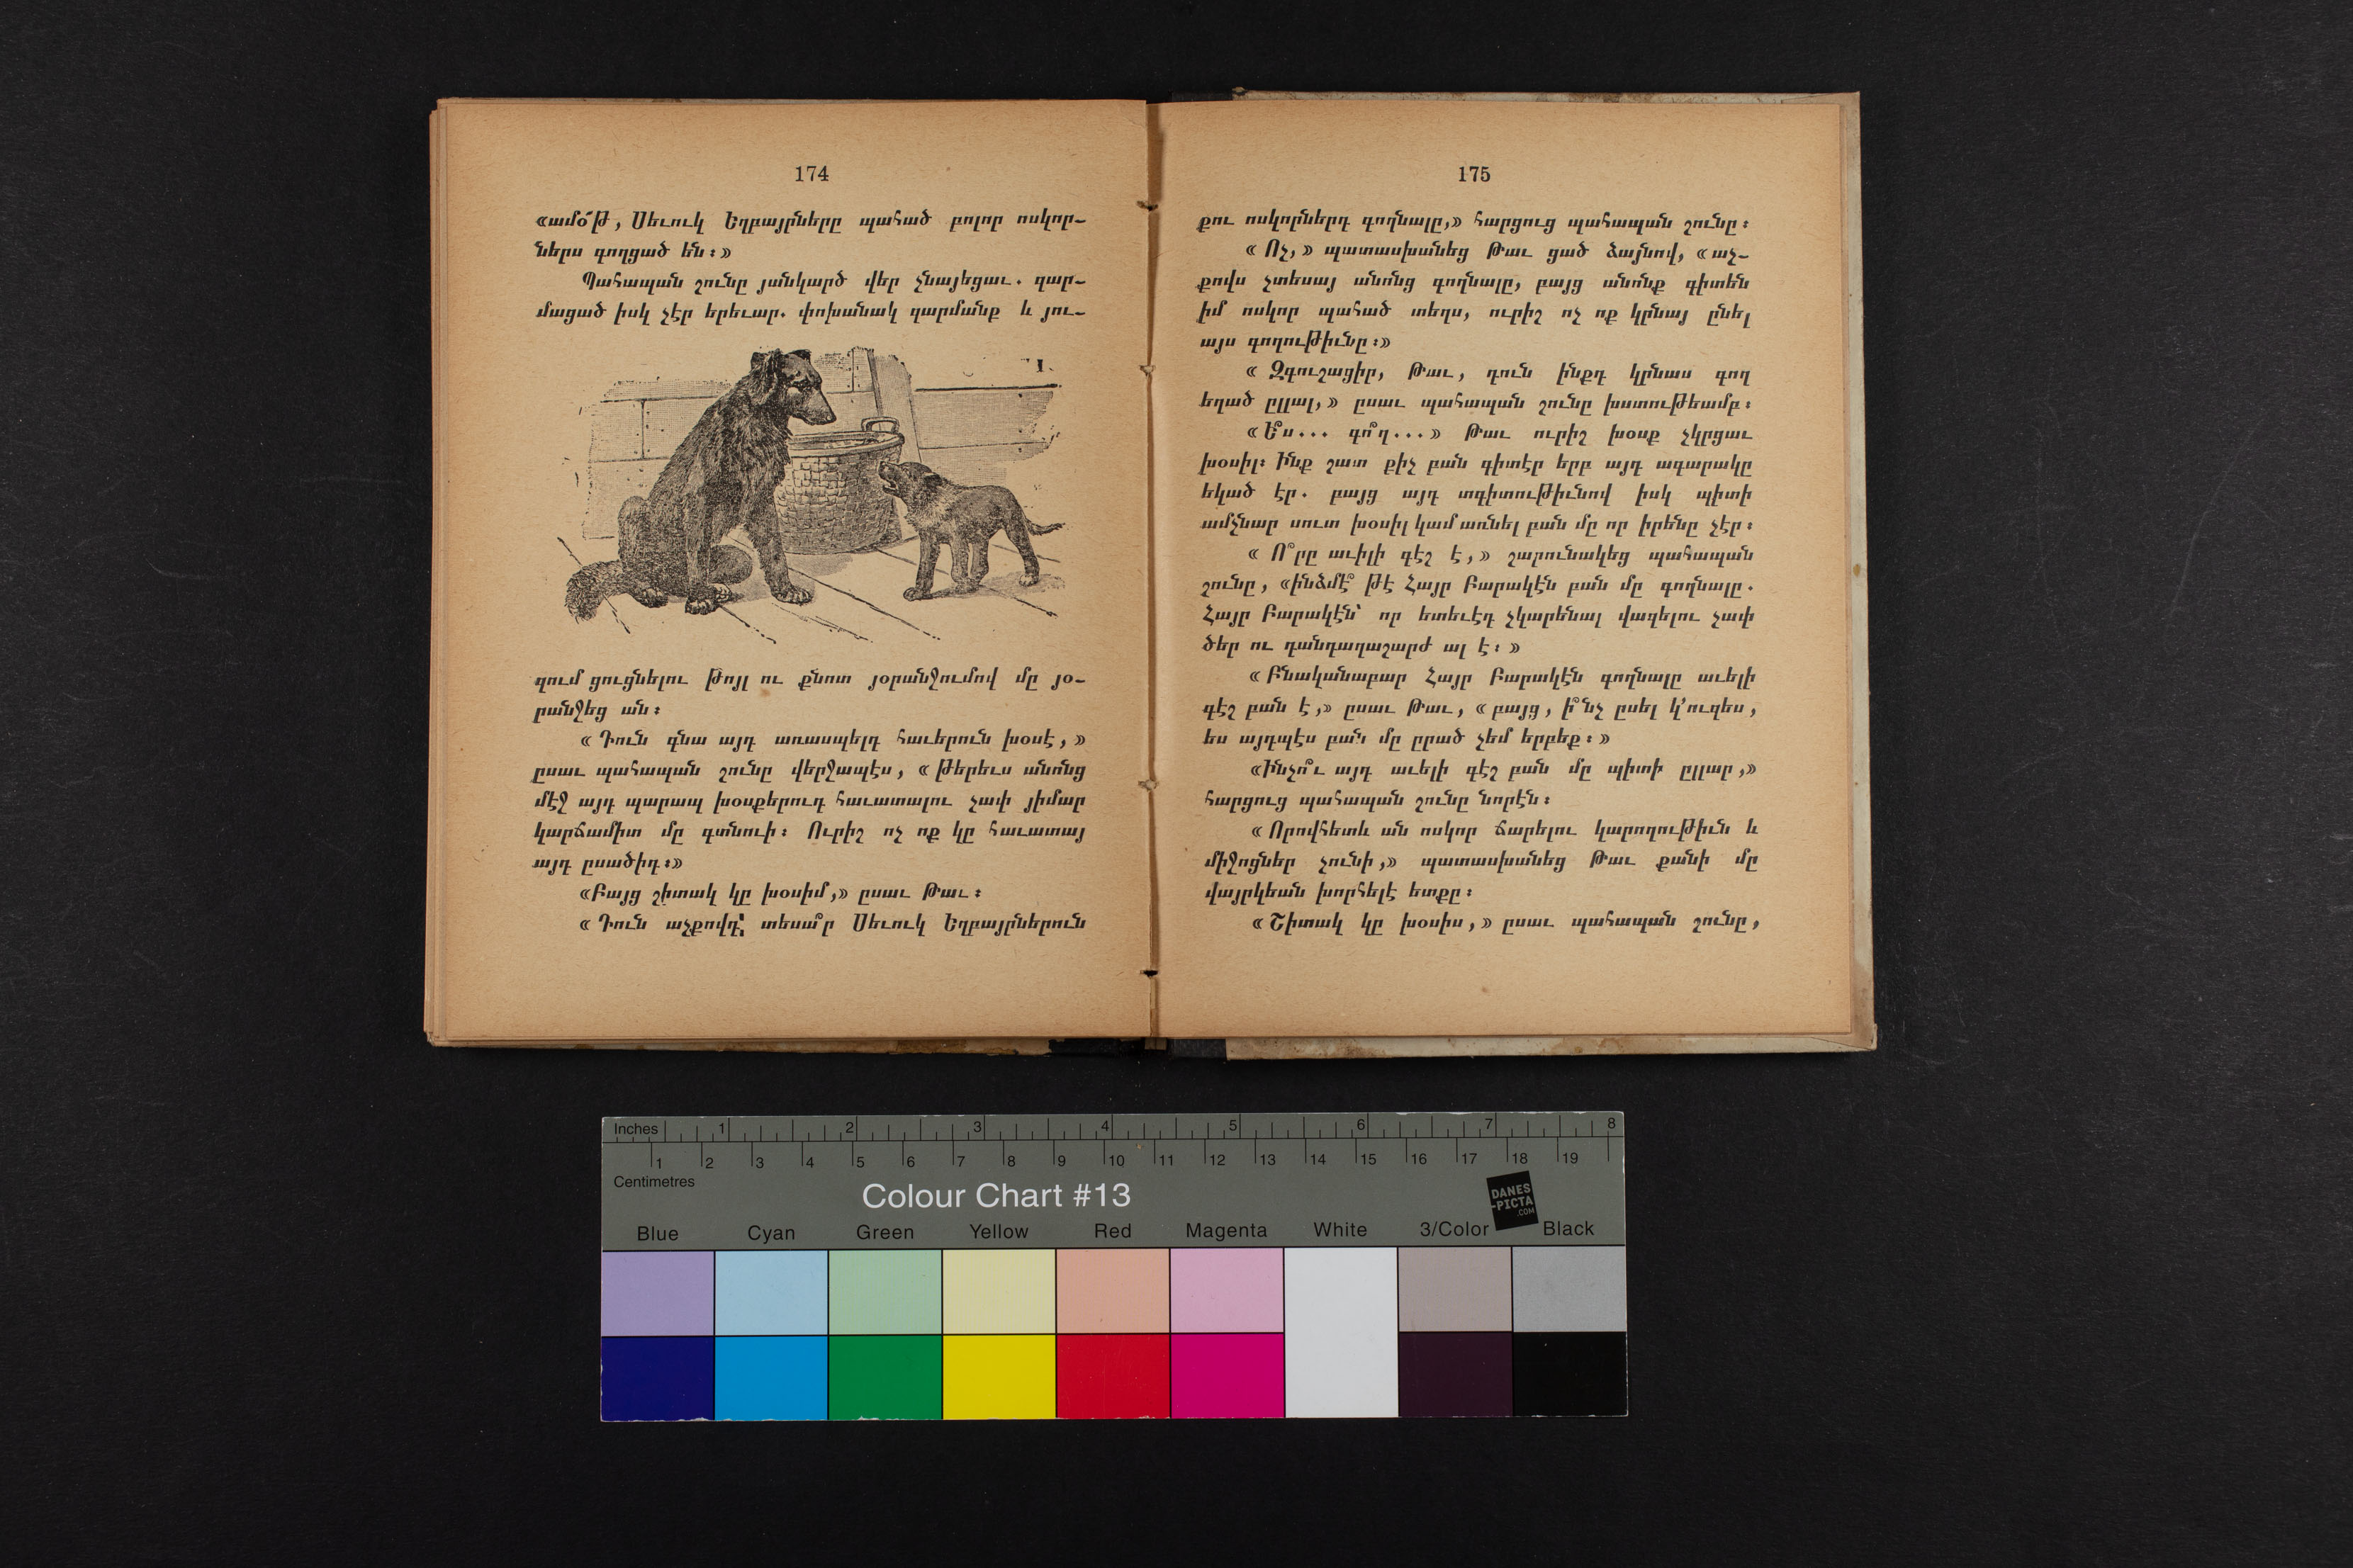 174
«ամօ՜թ, Սեւուկ Եղբայրները պահած բոլոր ոսկոր-
ներս գողցած են։»
Պահապան շունը յանկարծ վեր չնայեցաւ. զար-
մացած իսկ չէր երեւար. փոխանակ զարմանք և յու-
զում ցուցնելու թոյլ ու քնոտ յօրանջումով մը յօ-
րանջեց ան։
« Դուն գնա այդ առասպելդ հաւերուն խօսէ,»
ըսաւ պահապան շունը վերջապէս, « թերեւս անոնց
մէջ այդ պարապ խօսքերուդ հաւատալու չափ յիմար
կարճամիտ մը գտնուի։ Ուրիշ ոչ ոք կը հաւատայ
այդ ըսածիդ։»
«Բայց շիտակ կը խօսիմ,» ըսաւ Թաւ։
« Դուն աչքովդ՝ տեսա՞ր Սեւուկ Եղբայրներուն
175
քու ոսկորներդ գողնալը,» հարցուց պահապան շունը։
« Ոչ,» պատասխանեց Թաւ ցած ձայնով, « աչ-
քովս չտեսայ անոնց գողնալը, բայց անոնք գիտեն
իմ ոսկոր պահած տեղս, ուրիշ ոչ ոք կրնայ ընել
այս գողութիւնը։»
« Զգուշացիր, Թաւ, դուն ինքդ կրնաս գող
եղած ըլլալ,» ըսաւ պահապան շունը խստութեամբ։
« Ե՞ս... գո՞ղ...» Թաւ ուրիշ խօսք չկրցաւ
խօսիլ։ Ինք շատ քիչ բան գիտէր երբ այդ ագարակը
եկած էր. բայց այդ տգիտութիւնով իսկ պիտի
ամչնար սուտ խօսիլ կամ առնել բան մը որ իրենը չէր։
« Ո՞րը աւիլի գէշ է,» շարունակեց պահապան
շունը, «ինձմէ՞ թէ Հայր Բարակէն բան մը գողնալը.
Հայր Բարակէն՝ որ ետեւէդ չկարենալ վազելու չափ
ծեր ու դանդաղաշարժ ալ է։ »
« Բնականաբար Հայր Բարակէն գողնալը աւելի
գէշ բան է,» ըսաւ Թաւ, « բայց, ի՞նչ ըսել կ՚ուզես,
ես այդպէս բան մը ըրած չեմ երբեք։ »
«Ինչո՞ւ այդ աւելի գէշ բան մը պիտի ըլլար,»
հարցուց պահապան շունը նորէն։
« Որովհետև ան ոսկոր ճարելու կարողութիւն և
միջոցներ չունի,» պատասխանեց Թաւ քանի մը
վայրկեան խորհելէ ետքը։
« Շիտակ կը խօսիս,» ըսաւ պահապան շունը,
Inches 1 2 3 4 5 6 7 8
1 2 3 4 5 6 7 8 9 10 11 12 13 14 15 16 17 18 19
Centimetres
Colour Chart #13
DANES
-PICTA
.COM
Blue Cyan Green Yellow Red Magenta White 3/Color Black